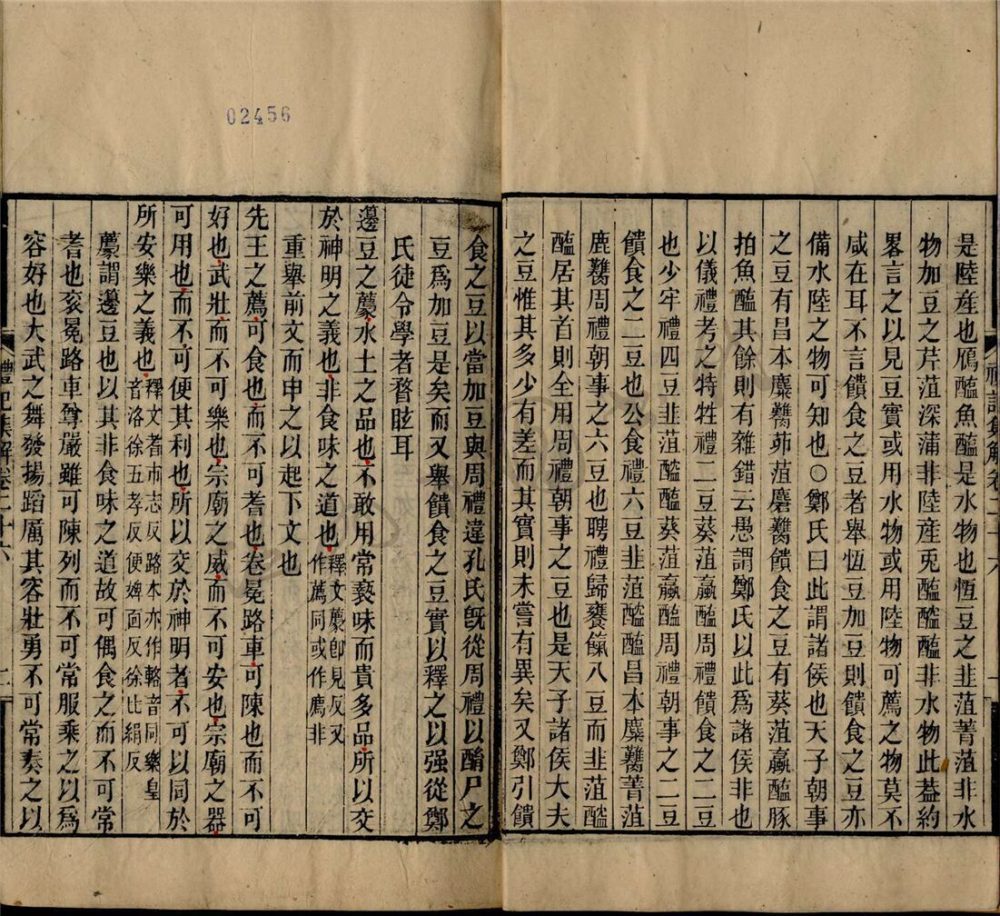 02456
是陸産也鴈醢魚醢是水物也恆豆之韭菹菁菹非水
物加豆之芹菹深蒲非陸産兎醢醓醢非水物此葢約
畧言之以見豆實或用水物或用陸物可薦之物莫不
咸在耳不言饋食之豆者舉恆豆加豆則饋食之豆亦
備水陸之物可知也○鄭氏曰此謂諸侯也天子朝事
之豆有昌本麋臡茆菹麏臡饋食之豆有葵菹蠃醢豚
拍魚醢其餘則有雜錯云愚謂鄭氏以此爲諸侯非也
以儀禮考之特牲禮二豆葵菹蠃醢周禮饋食之二豆
也少牢禮四豆韭菹醓醢葵菹蠃醢周禮朝事之二豆
饋食之二豆也公食禮六豆韭菹醓醢昌本麋臡菁菹
鹿臡周禮朝事之六豆也聘禮歸饔餼八豆而韭菹醓
醢居其首則全用周禮朝事之豆也是天子諸侯大夫
之豆惟其多少有差而其實則未嘗有異矣又鄭引饋
食之豆以當加豆與周禮違孔氏旣從周禮以酳尸之
豆爲加豆是矣而又舉饋食之豆實以釋之以强從鄭
氏徒令學者瞀眩耳
籩豆之薦水土之品也不敢用常褻味而貴多品所以交
於神明之義也非食味之道也釋文薦卽見反又作薦同或作廌非
重舉前文而申之以起下文也
先王之薦可食也而不可耆也卷冕路車可陳也而不可
好也武壯而不可樂也宗廟之威而不可安也宗廟之器
可用也而不可便其利也所以交於神明者不可以同於
所安樂之義也釋文耆市志反路本亦作輅音同樂皇音洛徐五孝反便婢面反徐比絹反
薦謂籩豆也以其非食味之道故可偶食之而不可常
耆也衮冕路車尊嚴雖可陳列而不可常服乘之以爲
容好也大武之舞發揚蹈厲其容壯勇不可常奏之以
禮記集解卷二十六